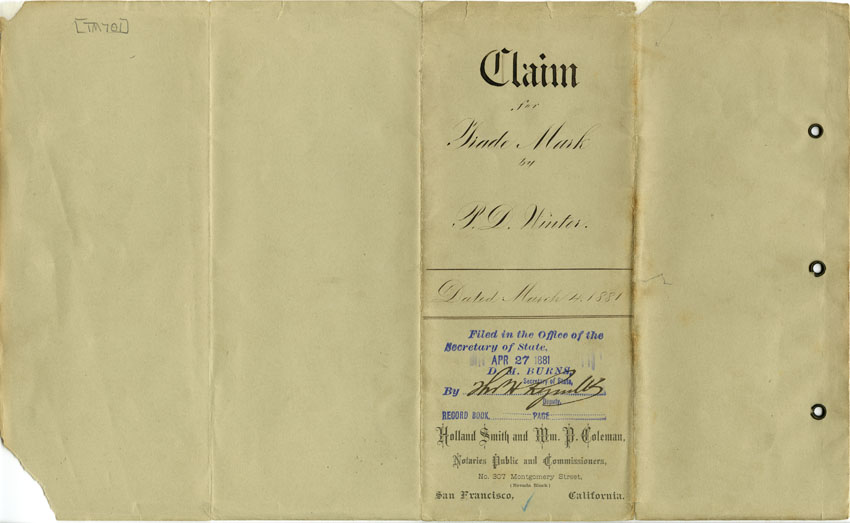 [TM701]
Claim
for
Trade Mark
by
P. D. Winter.
Dated March 4, 1881
Filed in the Office of the
Secretary of State,
APR 27 1881
D. M. BURNS,
Secretary of State,
By
Deputy.
RECORD BOOK, PAGE
Holland Smith and Wm. P. Coleman,
Notaries Public and Commissioners,
No. 307 Montgomery Street,
(Nevada Block)
San Francisco, California.